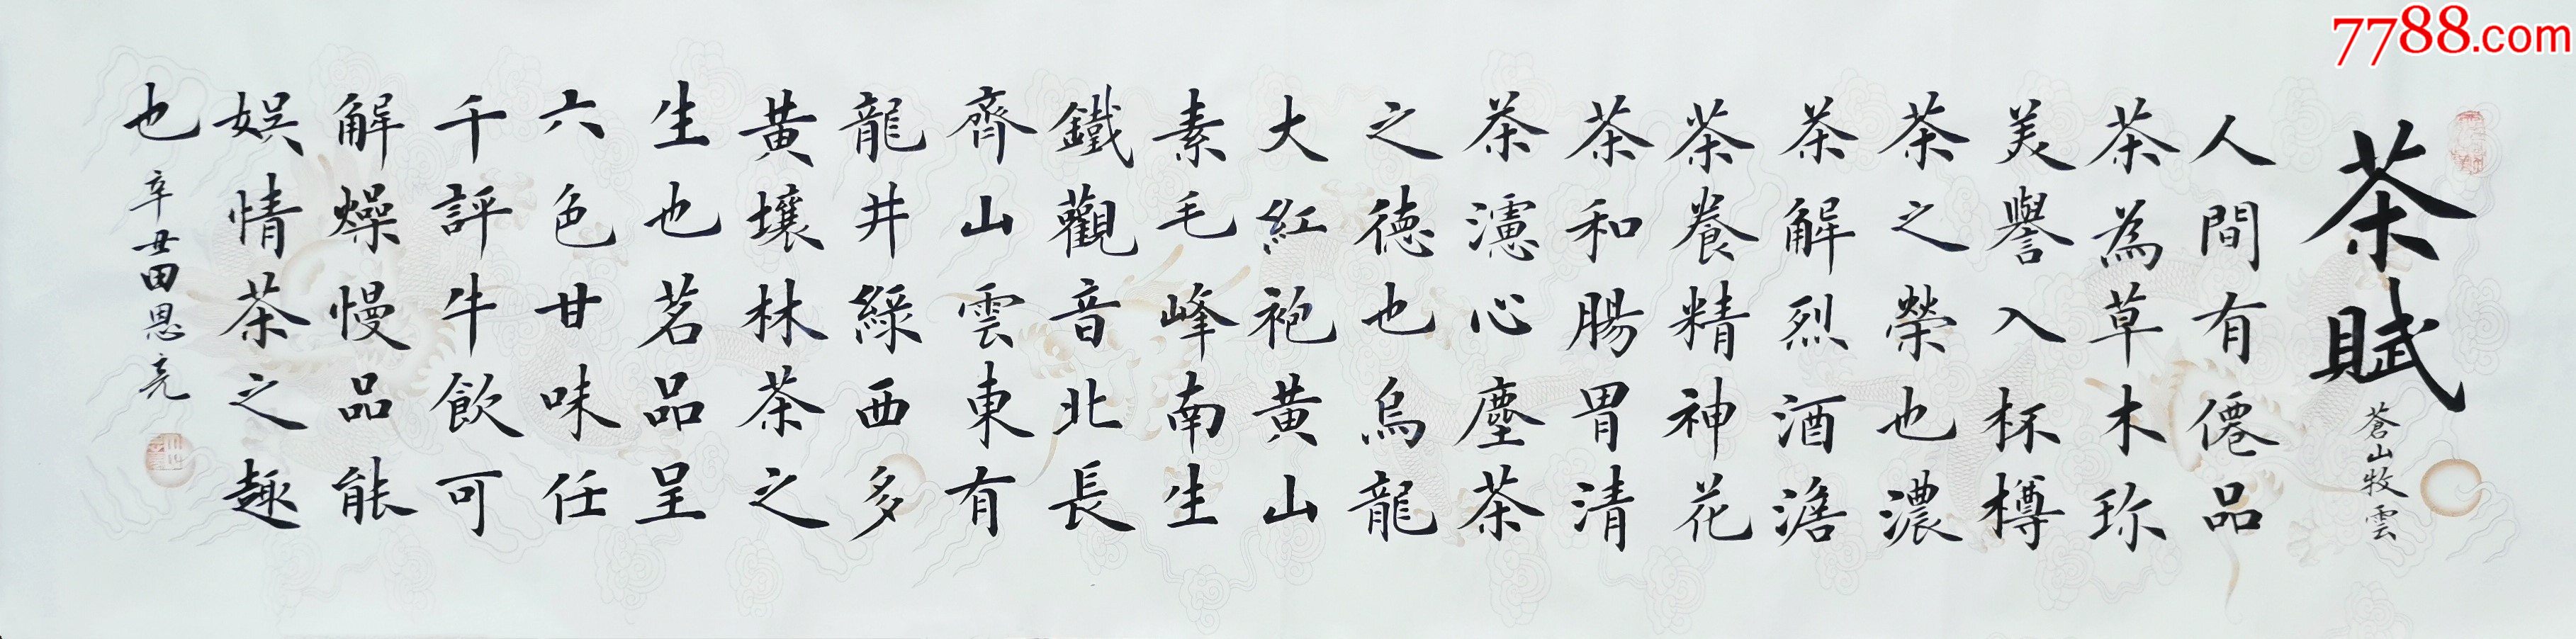 茶賦
蒼山牧雲
人間有僊品
茶為草木珎
美譽入杯樽
茶之榮也濃
茶解烈酒澹
茶養精神花
茶和腸胃清
茶濾心塵茶
之德也烏龍
大紅袍黃山
素毛峰南生
鐵觀音北長
齊山雲東有
龍井綠西多
黃壤林茶之
生也茗品呈
六色甘味任
千評牛飲可
解燥慢品能
娛情茶之趣
也
辛丑田恩亮
7788.com